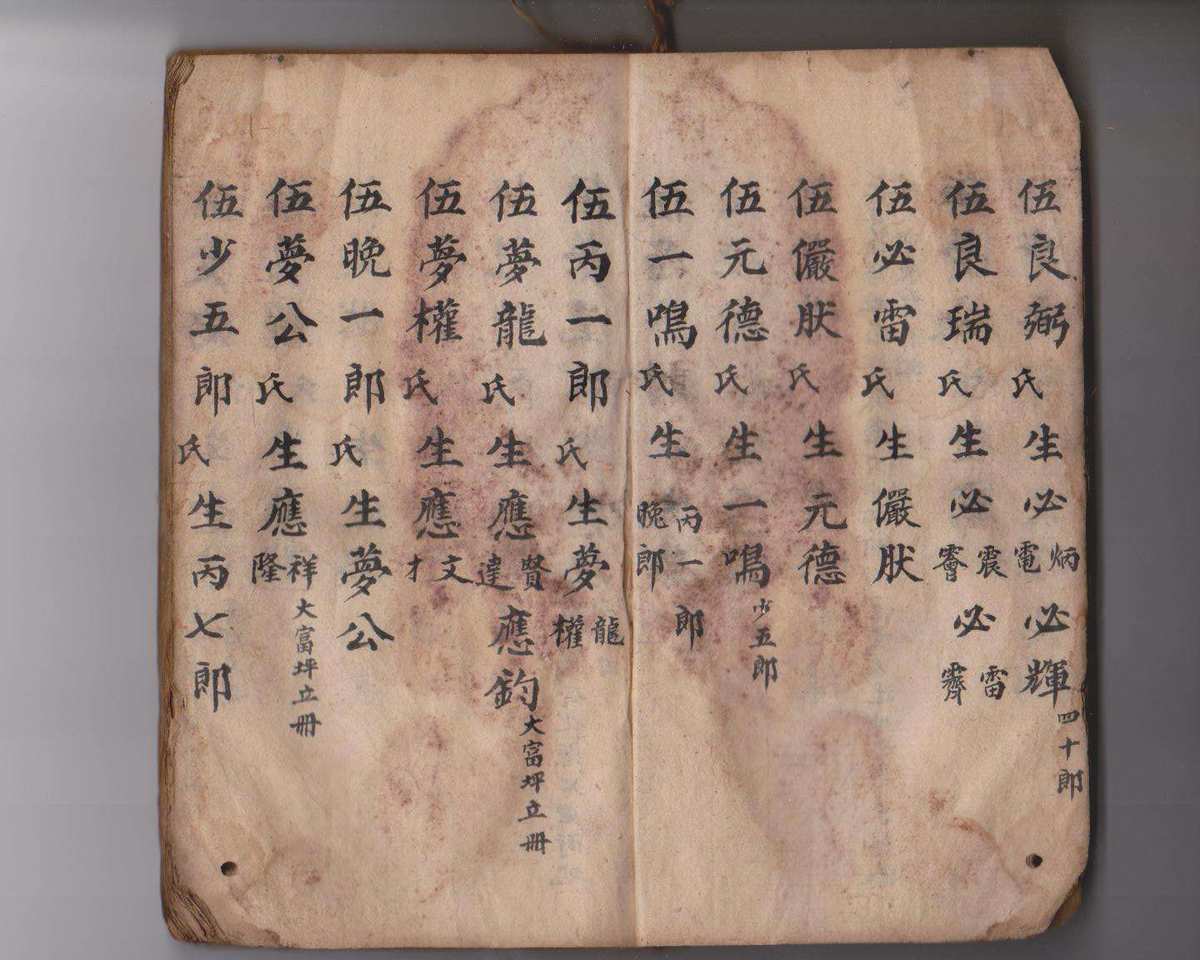 伍良弼氏生必炳電必輝四十郎
伍良瑞氏生必震霻必雷霽
伍必雷氏生儼肰
伍儼肰氏生元德
伍元德氏生一鳴少五郎
伍一鳴氏生丙一郎晚郎
伍丙一郎氏生夢龍權
伍夢龍氏生應賢達應鈞大富坪立册
伍夢權氏生應文才
伍晚一郎氏生夢公
伍夢公氏生應祥隆大富坪立册
伍少五郎氏生丙七郎